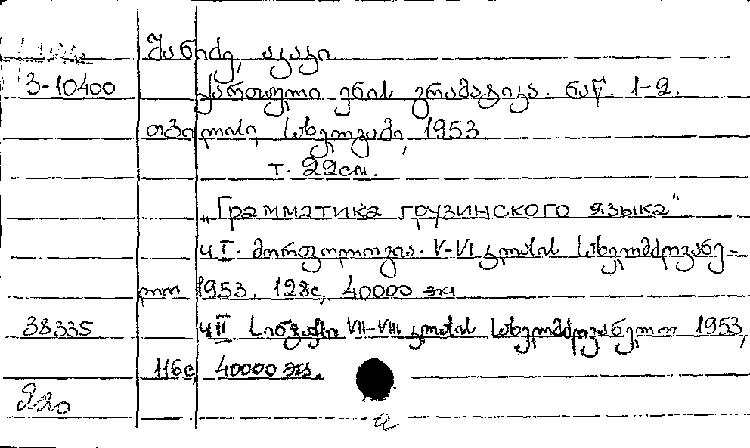 შანიძე, აკაკი
3-10400 ქართული ენის გრამატიკა. ნაწ. 1-2.
თბილისი, სახელგამი, 1953
т. 22см.
„Грамматика грузинского языка"
ч I. მორფოლოგია. V-VI კლასის სახელმძღვანე-
ლო 1953. 128с, 40000 экз
38335 ч II სინტაქსი VII-VIII კლასის სახელმძღვანელო 1953,
116с, 40000 экз.